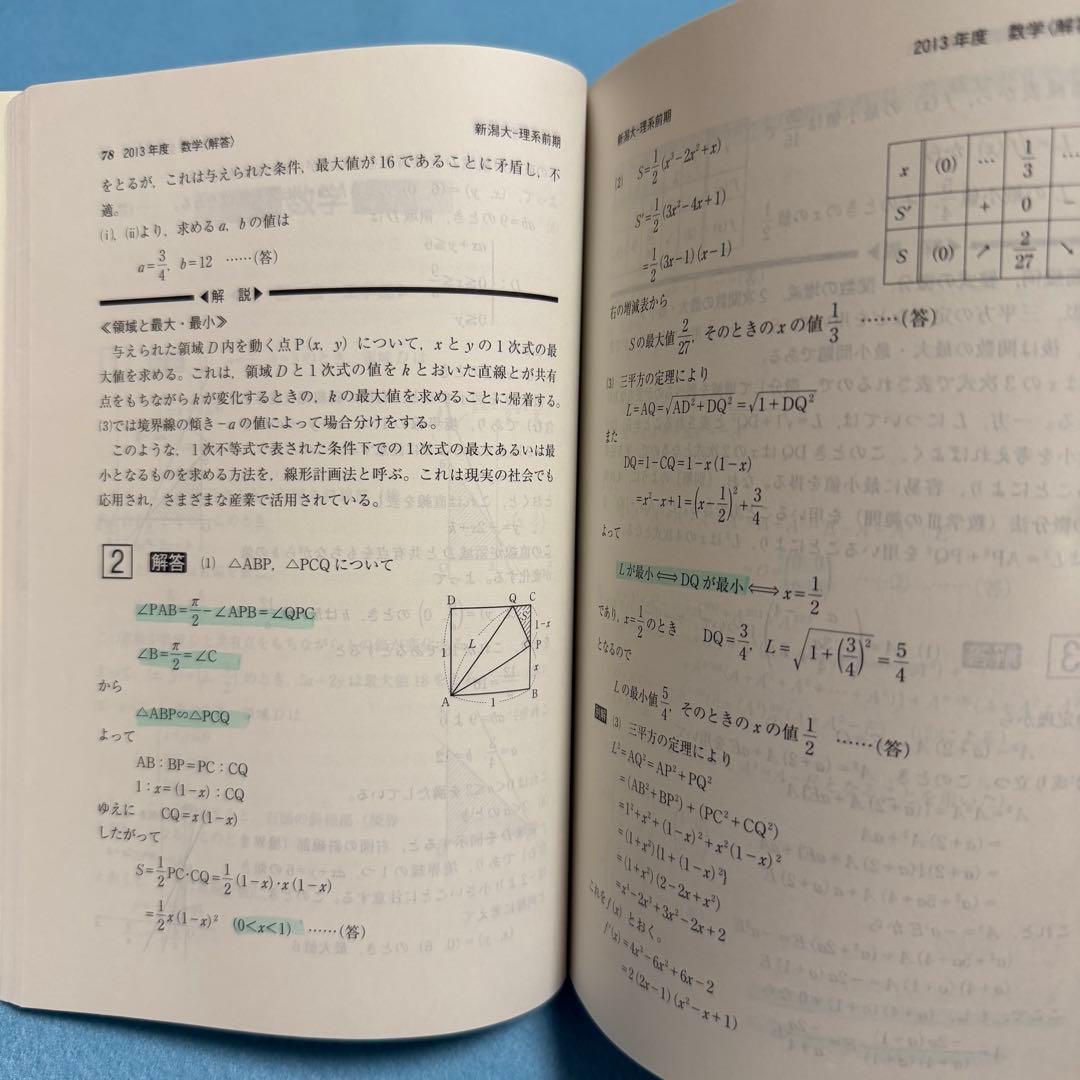 78 2013年度 数学〈解答〉 新潟大-理系前期
をとるが,これは与えられた条件,最大値が16であることに矛盾し,不
適。
(ⅰ),(ⅱ)より,求めるa,bの値は
a=3/4, b=12 ……(答)
◀解 説▶
≪領域と最大・最小≫
与えられた領域D内を動く点P(x, y)について,xとyの1次式の最
大値を求める。これは,領域Dと1次式の値をkとおいた直線とが共有
点をもちながらkが変化するときの,kの最大値を求めることに帰着する。
(3)では境界線の傾き-aの値によって場合分けをする。
このような,1次不等式で表された条件下での1次式の最大あるいは最
小となるものを求める方法を,線形計画法と呼ぶ。これは現実の社会でも
応用され,さまざまな産業で活用されている。
2 解答 (1) △ABP,△PCQについて
∠PAB=π/2-∠APB=∠QPC
∠B=π/2=∠C
から
△ABP∽△PCQ
よって
AB:BP=PC:CQ
1:x=(1-x):CQ
ゆえに CQ=x(1-x)
したがって
S=1/2 PC・CQ=1/2 (1-x)・x(1-x)
=1/2 x(1-x)² (0<x<1) ……(答)
D Q C
S 1-x
1 L P
x
A 1 B
2013年度 数学〈解答
新潟大-理系前期
(2) S=1/2 (x³-2x²+x)
S′=1/2 (3x²-4x+1)
=1/2 (3x-1)(x-1)
x (0) … 1/3 …
S′ + 0 -
S (0) ↗ 2/27 ↘
右の増減表から
Sの最大値 2/27, そのときのxの値 1/3 ……(答)
(3) 三平方の定理により
L=AQ=√(AD²+DQ²)=√(1+DQ²)
また
DQ=1-CQ=1-x(1-x)
=x²-x+1=(x-1/2)²+3/4
よって
Lが最小⟺DQが最小⟺x=1/2
であり,x=1/2のとき DQ=3/4, L=√(1+(3/4)²)=5/4
となるので
Lの最小値 5/4, そのときのxの値 1/2 ……(答)
別解 (3) 三平方の定理により
L²=AQ²=AP²+PQ²
=(AB²+BP²)+(PC²+CQ²)
=1²+x²+(1-x)²+x²(1-x)²
=(1+x²){1+(1-x)²}
=(1+x²)(2-2x+x²)
=x⁴-2x³+3x²-2x+2
これをf(x)とおく。
f′(x)=4x³-6x²+6x-2
=2(2x-1)(x²-x+1)